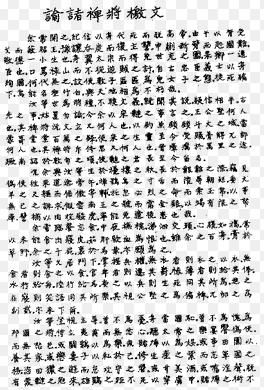 諭諸裨將檄文
余嘗聞之紀信以身代死而脫高帝由于以背受
戈而蔽招王豫讓吞炭而復主讎申蒯斷臂而赴國難
敬德一小生也身翼太宗而得免世充之圍杲卿一遠
臣也口罵祿山而不從逆賊之計自古忠臣義士以身
殉國何代無之設使數子區區為兒女子之態徒死牖
下烏能名垂竹白與天地相為不朽哉
汝等世為將種不曉文義既聞其說疑信相半古
先之事姑置勿論今余以宋韃之事言之王公堅何人
也其裨將阮文立又何人也以釣魚鎖鎖斗大之城當
蒙哥堂堂百萬之鋒使宋之生靈至今受賜骨待兀郎
何人也其裨將赤脩思又何人也冒瘴厲於萬里之途
獗南詔於數旬之頃使韃之君長至今留名
況余與汝等生於擾攘之秋長於艱難之際竊見
偽使往來道途旁午掉鴞烏之寸舌而陵辱朝廷委犬
羊之尺軀而倨傲宰祔托忽必列之令而索玉帛以事
無已之誅求假雲南王之號而揫金銀以竭有限之帑
庫譬猶以肉投餒虎寧能免遺後患也哉
余常臨餐忘食中夜撫枕涕泗交痍心腹如搗常
以未能食肉寢皮茹肝飲血為恨也雖余之百身高於
草野余之千屍裹於馬革亦願為之
汝等久居門下掌握兵權無衣者則衣之以衣無
食者則食之以食官卑者則遷其爵祿薄者則給其俸
水行給舟陸行給馬委之以兵則生死同其所為進之
在寢則笑語同其所樂其視公堅之為偏裨兀郎之為
副貳亦未下爾
汝等坐視主辱曾不為憂身當國恥曾不為愧為
邦國之將侍立夷宿而無忿心聽太常之樂宴饗偽使
而無怒色或鬥雞以為樂或賭博以為娛或事田園以
養其家或戀妻子以私於己修生產之業而忘軍國之
務恣田獵之遊而怠攻守之習或甘美酒或嗜淫聲脱有
蒙韃之寇來雄雞之距不足以穿虜甲